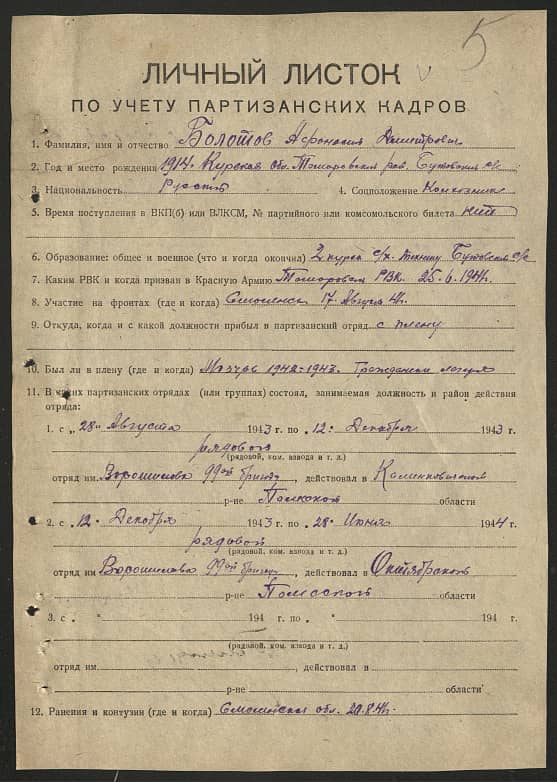 5
ЛИЧНЫЙ ЛИСТОК
ПО УЧЕТУ ПАРТИЗАНСКИХ КАДРОВ
1. Фамилия, имя и отчество Болотов Афонасия Дмитревич
2. Год и место рождения 1914 Курская Обл. Томаровский рай. Бутовский с/с
3. Национальность Русский 4. Соцположение Колхозник
5. Время поступления в ВКП(б) или ВЛКСМ, № партийного или комсомольского билета нит
6. Образование: общее и военное (что и когда окончил) 2 курса с/х. технику Бутовский с/с
7. Каким РВК и когда призван в Красную Армию Томаровский РВК 25.6.1941г.
8. Участие на фронтах (где и когда) Смоленск 17 Август 41г.
9. Откуда, когда и с какой должности прибыл в партизанский отряд с плену
10. Был ли в плену (где и когда) 1942-1943. Граждански лагеря
11. В каких партизанских отрядах (или группах) состоял, занимаемая должность и район действия
отряда:
1. с „28" Августа 1943 г. по „12" Декабря 1943 г.
рядовой
(рядовой, ком. взвода и т. д.)
отряд им. Ворошилова 99ой бригады, действовал в Калинковическом
р-не Полеской области
2. с „12" Декабря 1943 г. по „28" Июня 1944 г.
рядовой
(рядовой, ком. взвода и т. д.)
отряд им Ворошилова 99ой бригады, действовал в Октябрьском
р-не Полесской области
3. с „ " 194 г. по „ " 194 г.
(рядовой, ком. взвода и т. д.)
отряд им. , действовал в
р-не области
12. Ранения и контузии (где и когда) Смоленская обл. 20.8.41г.